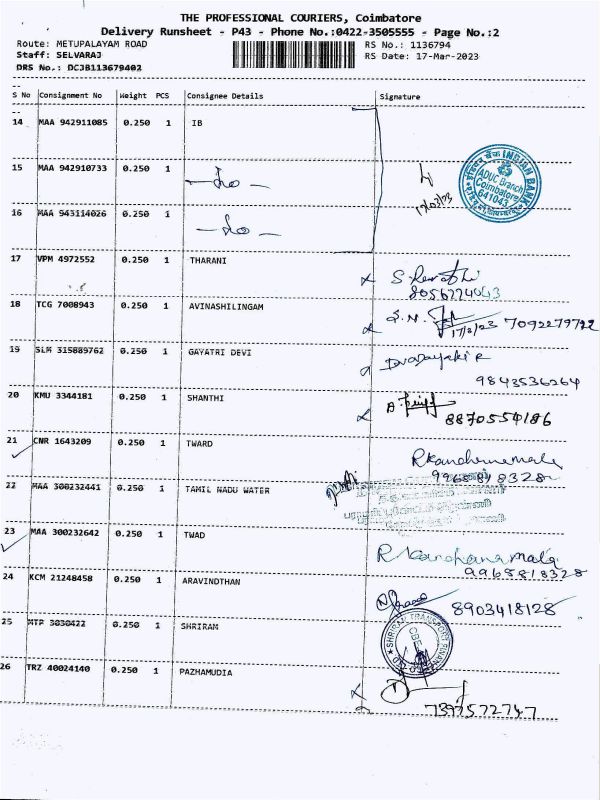 THE PROFESSIONAL COURIERS, Coimbatore
Delivery Runsheet - P43 - Phone No.:0422-3505555 - Page No.:2
Route: METUPALAYAM ROAD RS No.: 1136794
Staff: SELVARAJ RS Date: 17-Mar-2023
DRS No.: DCJB113679402
S No Consignment No Weight PCS Consignee Details Signature
14 MAA 942911085 0.250 1 IB
15 MAA 942910733 0.250 1
17/03/23
INDIAN BANK
ADUC Branch
Coimbatore
641043
16 MAA 943114026 0.250 1
17 VPM 4972552 0.250 1 THARANI
8056774043
18 TCG 7008943 0.250 1 AVINASHILINGAM
17/3/23 7092279722
19 SLM 315889762 0.250 1 GAYATRI DEVI
9843536264
20 KMU 3344181 0.250 1 SHANTHI
8870554186
21 CNR 1643209 0.250 1 TWARD
9968818328
22 MAA 300232441 0.250 1 TAMIL NADU WATER
23 MAA 300232642 0.250 1 TWAD
9968818328
24 KCM 21248458 0.250 1 ARAVINDTHAN
8903418128
25 MTP 3030422 0.250 1 SHRIRAM
26 TRZ 40024140 0.250 1 PAZHAMUDIA
7397572747